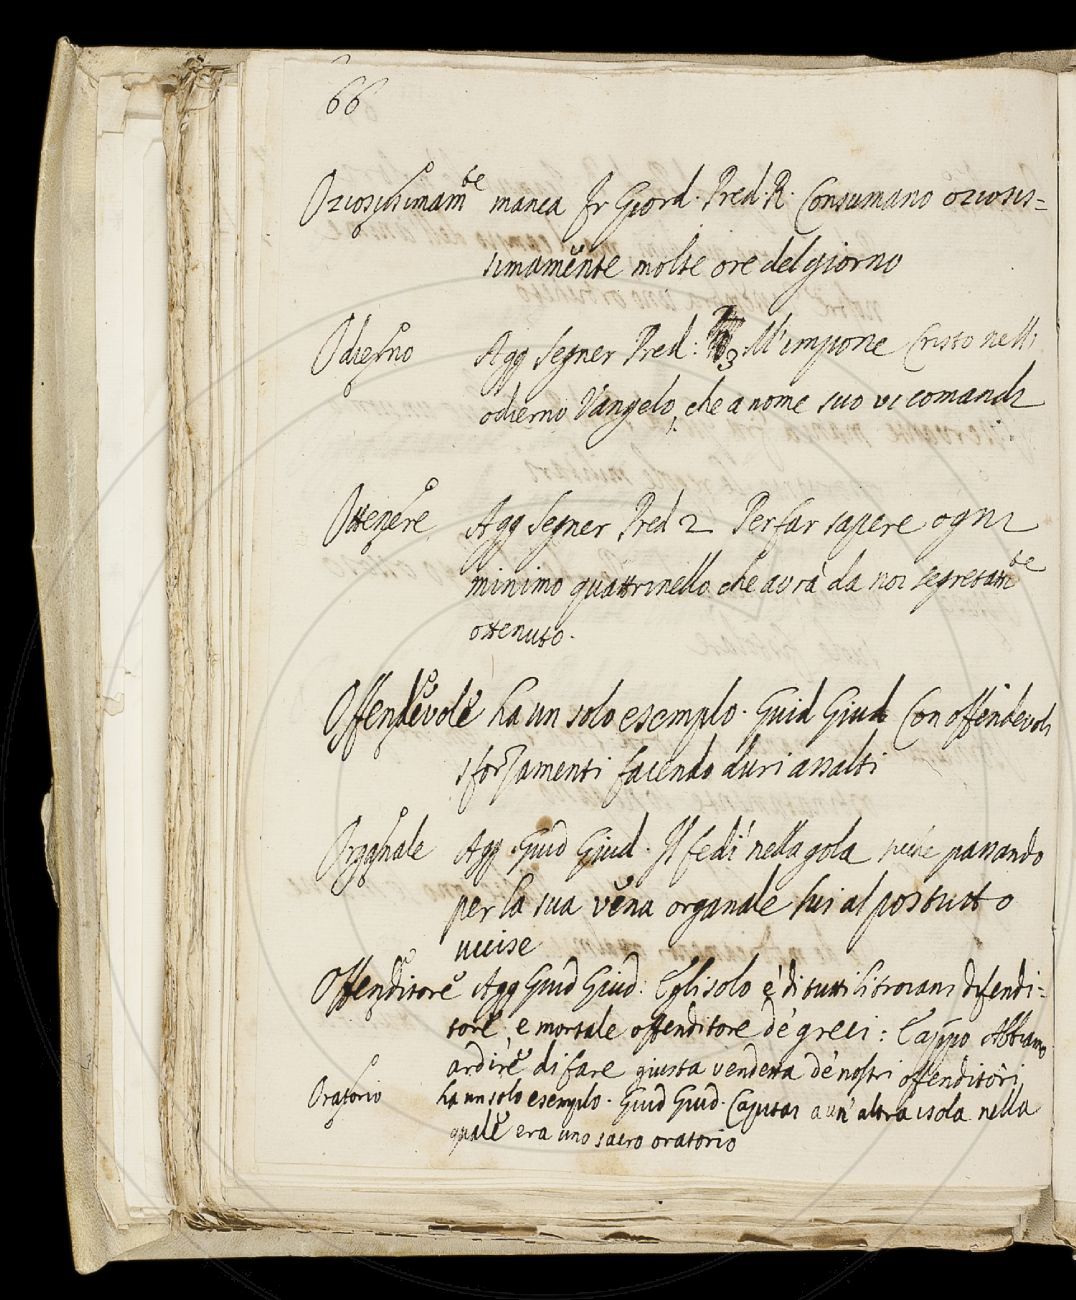 66
Oziosissimam.te manca Fr Giord. Pred. R. Consumano oziosis=
simamente molte ore del giorno
Odierno Agg Segner Pred: 3 M'impone Cristo nell
odierno Vangelo, che a nome suo vi comandi
Ottenere Agg Segner Pred 2 Per far sapere ogni
minimo quattrinello che avrà da noi segretam.te
ottenuto.
Offendevole ha un solo esempio. Guid Giud Con offendevoli
sforzamenti facendo duri assalti
Organale Agg. Guid Giud. Il fedì nella gola passando
per la sua vena organale lui al postutto
uccise
Offenditore Agg Guid Giud: Egli solo è di tutti li troiani difendi=
tore, e mortale offenditore de' greci: E appo Abbiamo
ardire di fare giusta vendetta de' nostri offenditori
Oratorio ha un solo esempio. Guid Giud. Capitai a un' altra isola nella
quale era uno sacro oratorio